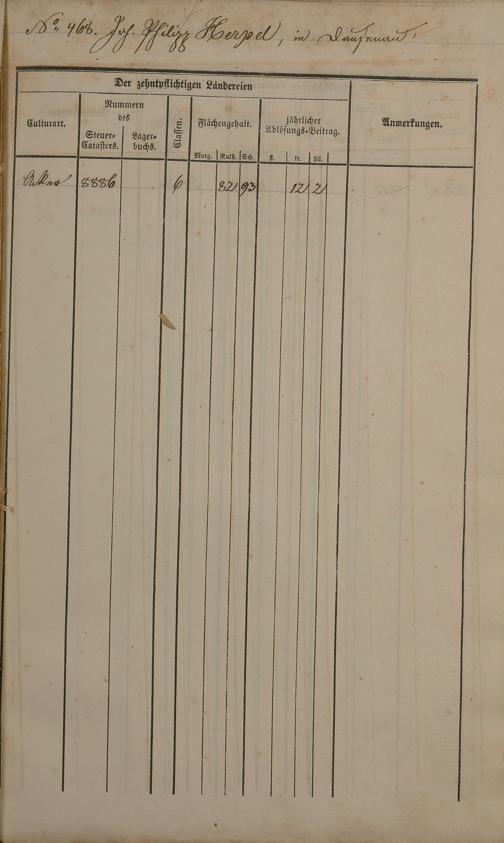 No 468. Joh. Philipp Herpel, in Dausenau.
Der zehntpflichtigen Ländereien
Culturart.
Nummern
des
Steuer-
Catasters.
Lager-
buchs.
Classen.
Flächengehalt.
jährlicher
Ablösungs-Beitrag.
Anmerkungen.
Morg. Ruth. Sch. fl. kr. hll.
Acker 8886 6 82 93 12 2